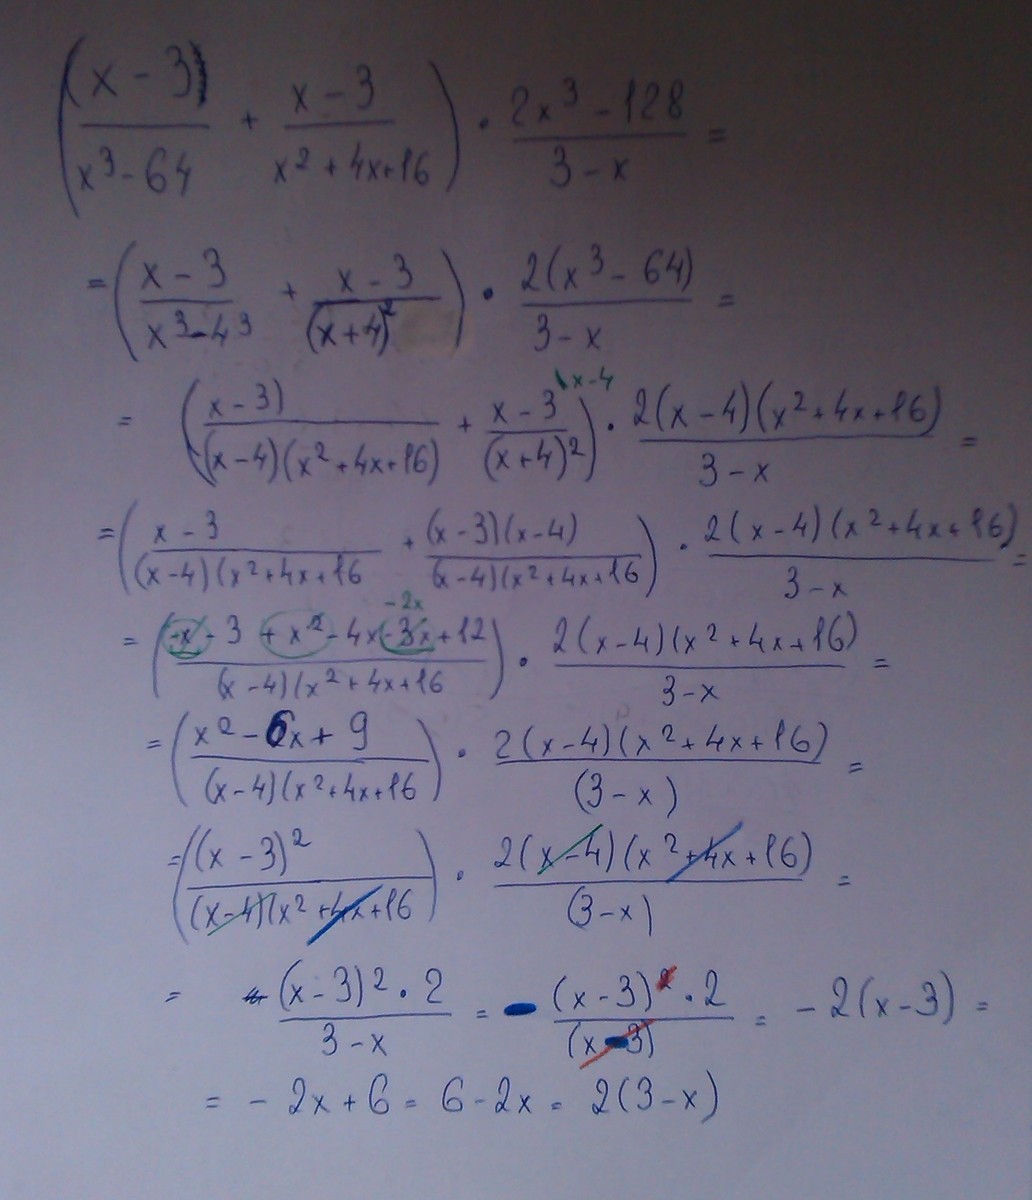 ((x - 3)/(x³ - 64) + (x - 3)/(x² + 4x + 16)) · (2x³ - 128)/(3 - x) =
= ((x - 3)/(x³ - 4³) + (x - 3)/(x + 4)²) · 2(x³ - 64)/(3 - x) =
= ((x - 3)/((x - 4)(x² + 4x + 16)) + (x - 3)/(x + 4)² \x - 4) · 2(x - 4)(x² + 4x + 16)/(3 - x) =
= ((x - 3)/((x - 4)(x² + 4x + 16) + (x - 3)(x - 4)/((x - 4)(x² + 4x + 16)) · 2(x - 4)(x² + 4x + 16)/(3 - x) =
-2x
= ((x - 3 + x² - 4x - 3x + 12)/((x - 4)(x² + 4x + 16)) · 2(x - 4)(x² + 4x + 16)/(3 - x) =
= ((x² - 6x + 9)/((x - 4)(x² + 4x + 16)) · 2(x - 4)(x² + 4x + 16)/(3 - x) =
= ((x - 3)²/((x - 4)(x² + 4x + 16)) · 2(x - 4)(x² + 4x + 16)/(3 - x) =
= (x - 3)² · 2/(3 - x) = - (x - 3)² · 2/(x - 3) = - 2(x - 3) =
= - 2x + 6 = 6 - 2x = 2(3 - x)